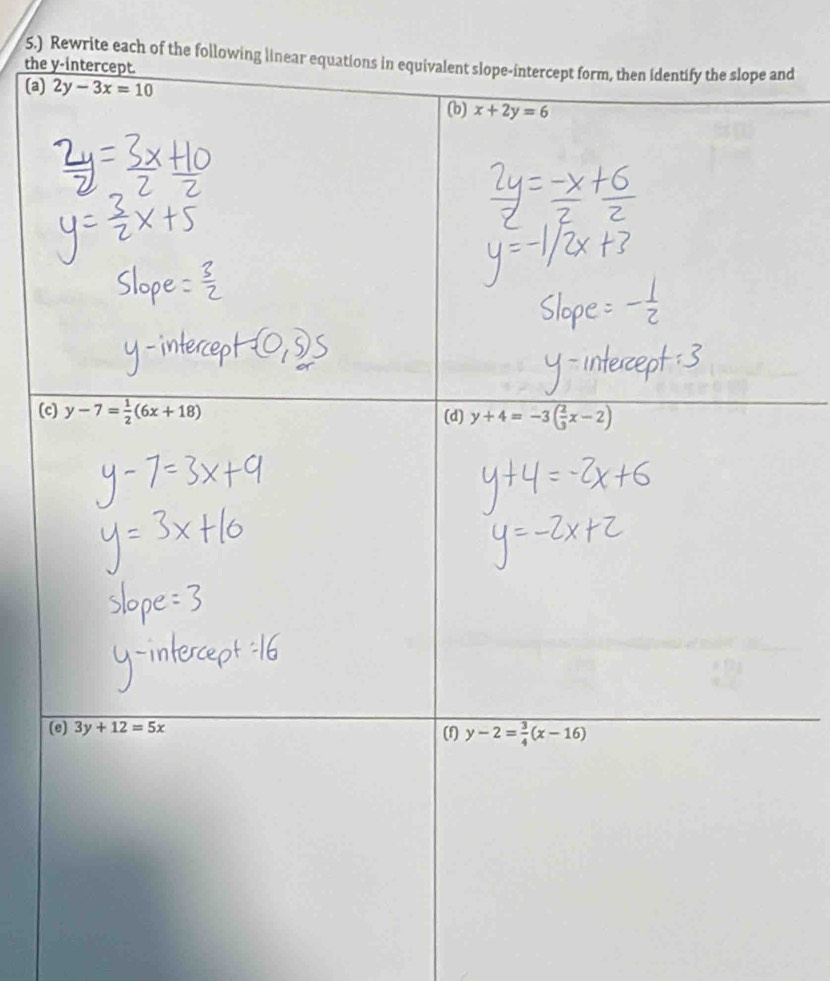 5.) Rewrite each of the following linear equations in equivalent slope-intercept form, then identify the slope and
the y-intercept.
(a) 2y − 3x = 10
2y/2 = 3x/2 + 10/2
y = 3/2 x + 5
Slope = 3/2
y-intercept = (0, 5) or 5
(b) x + 2y = 6
2y/2 = -x/2 + 6/2
y = -1/2x + 3
Slope = - 1/2
y-intercept: 3
(c) y − 7 = 1/2 (6x + 18)
y - 7 = 3x + 9
y = 3x + 16
slope = 3
y-intercept = 16
(d) y + 4 = −3(2/3 x − 2)
y + 4 = -2x + 6
y = -2x + 2
(e) 3y + 12 = 5x
(f) y − 2 = 3/4 (x − 16)